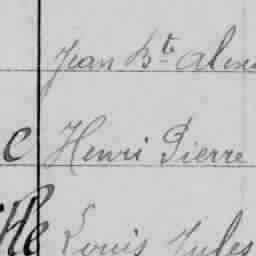 Jean Bte
c Henri Pierre
lle Louis Jules